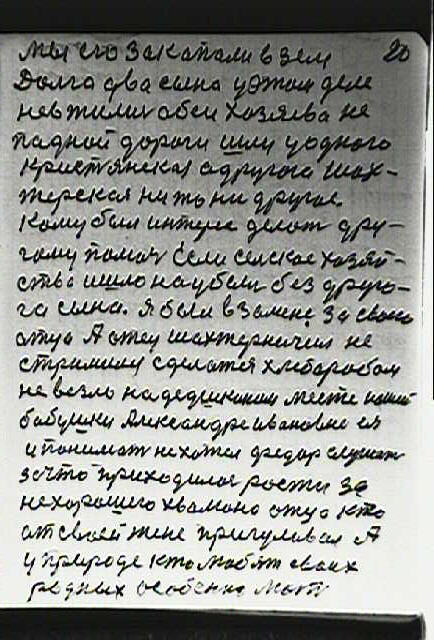 мы его закапали в зем 20
Долга два сына у этом деле
не вжилис обеи хозяева не
па дной дороги шли у одного
кристянская а другога шах-
терская ни то ни другое.
кому был интерес делат дру-
гому помоч Если селское хозяй-
ства ишло на убыл без друго-
га сына. Я был в замене за свого
отца А отец шахтерничил не
стримилси сделатся хлебаробом
не везло на дедушкином месте нашей
бабушки Александре ивановне ея
и понимат не хотел федар слушат
за что приходилос рости за
нехорошего хвамоно отца кто
от своей жене пригуливал А
у природе кто любят своих
редных особенно мать